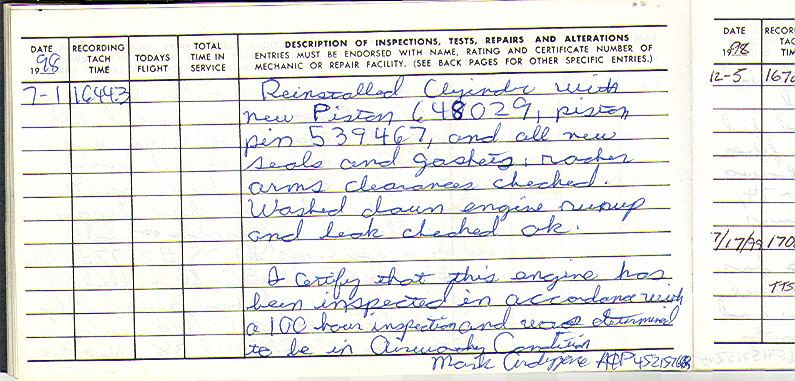 DATE
1998
RECORDING
TACH
TIME
TODAYS
FLIGHT
TOTAL
TIME IN
SERVICE
DESCRIPTION OF INSPECTIONS, TESTS, REPAIRS AND ALTERATIONS
ENTRIES MUST BE ENDORSED WITH NAME, RATING AND CERTIFICATE NUMBER OF
MECHANIC OR REPAIR FACILITY. (SEE BACK PAGES FOR OTHER SPECIFIC ENTRIES.)
7-1 1644.3 Reinstalled Clyinder with
new Piston 648029, piston
pin 539467, and all new
seals and gaskets, rocker
arms clearances checked.
Washed down engine runup
and leak checked ok.
I certify that this engine has
been inspected in accordance with
a 100 hour inspection and was determined
to be in Airworthy Condition
Mark A&P
DATE
1998
RECOR
TAC
TIM
12-5 167
7/17/99 170
TTS